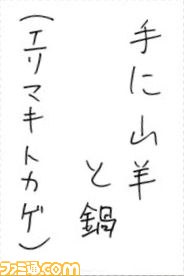 手に山羊
と鍋
(エリマキトカゲ)
ファミ通.com